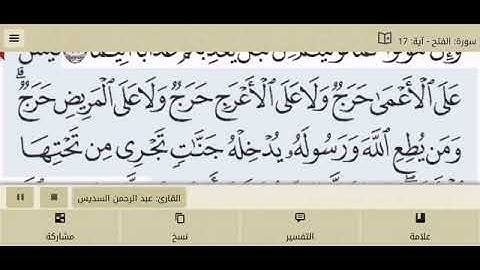 سورة: الفتح - آية: 17
لَيْسَ
عَلَى الْأَعْمَىٰ حَرَجٌ وَلَا عَلَى الْأَعْرَجِ حَرَجٌ وَلَا عَلَى الْمَرِيضِ حَرَجٌ ۗ
وَمَن يُطِعِ اللَّهَ وَرَسُولَهُ يُدْخِلْهُ جَنَّاتٍ تَجْرِي مِن تَحْتِهَا
القارئ: عبد الرحمن السديس
علامة
التفسير
نسخ
مشاركة